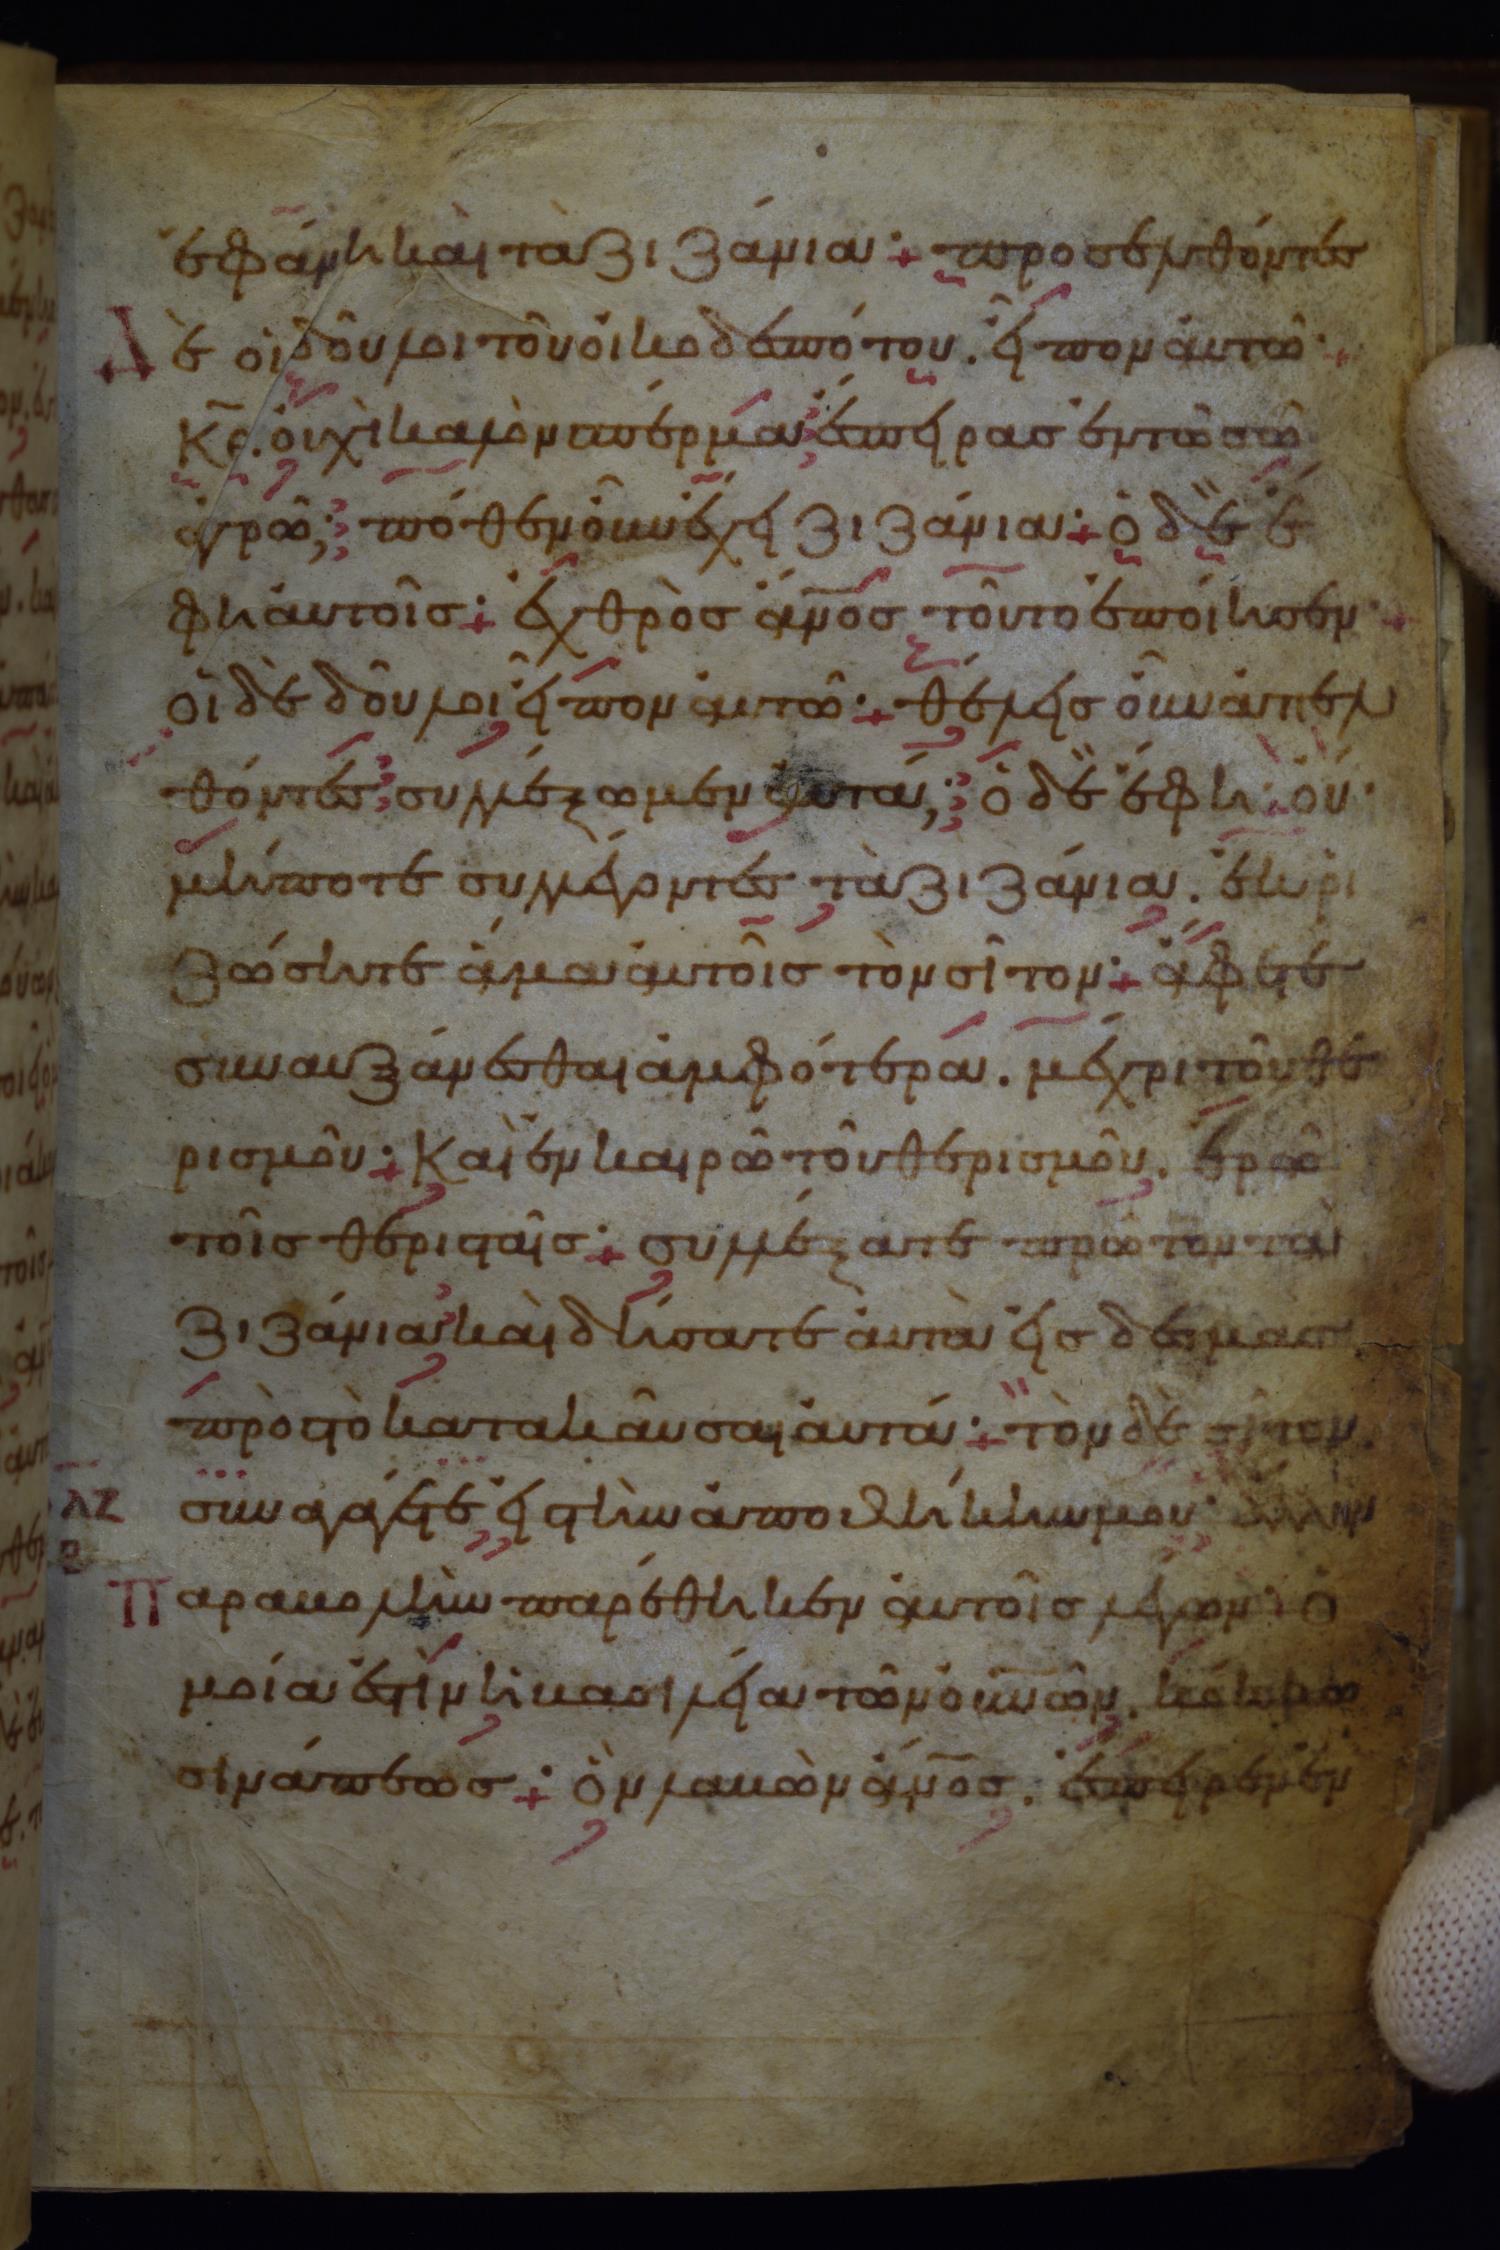 ἐφάνη καὶ τὰ ζιζάνια· + προσελθόντες
δὲ οἱ δοῦλοι τοῦ οἰκοδεσπότου. εἶπον αὐτῶ· +
κ̅ε̅. οὐχὶ καλὸν σπέρμα ἔσπειρας ἐν τῶ σῶ
ἀγρῶ; πόθεν οὖν ἔχει ζιζάνια· + ὁ δὲ ἔ
φη αὐτοῖς· + ἐχθρὸς ἄν̅ο̅ς τοῦτο ἐποίησεν· +
οἱ δὲ δοῦλοι εἶπον αὐτῶ· + θέλεις οὖν ἀπελ
θόντες συλλέξωμεν αὐτά; ὁ δὲ ἔφη· οὔ·
μήποτε συλλέγοντες τὰ ζιζάνια. ἐκρι
ζώσητε ἅμα αὐτοῖς τὸν σῖτον· + ἄφετε
συναυξάνεσθαι ἀμφότερα. μέχρι τοῦ θε
ρισμοῦ· + Καὶ ἐν καιρῶ τοῦ θερισμοῦ. ἐρῶ
τοῖς θερισταῖς· + συλλέξατε πρῶτον τὰ
ζιζάνια καὶ δήσατε αὐτὰ εἰς δέσμας
πρὸς τὸ κατακαῦσαι αὐτά· + τὸν δὲ σῖτον.
λζ συναγάγετε εἰς τὴν ἀποθήκην μου· ἄλλην
Παραβολὴν παρέθηκεν αὐτοῖς λέγων· ὁ
μοία ἐστὶν ἡ βασιλεία τῶν οὐ̅ν̅ῶν. κόκκω
σινάπεως· + ὃν λαβὼν ἄν̅ο̅ς. ἔσπειρεν ἐν